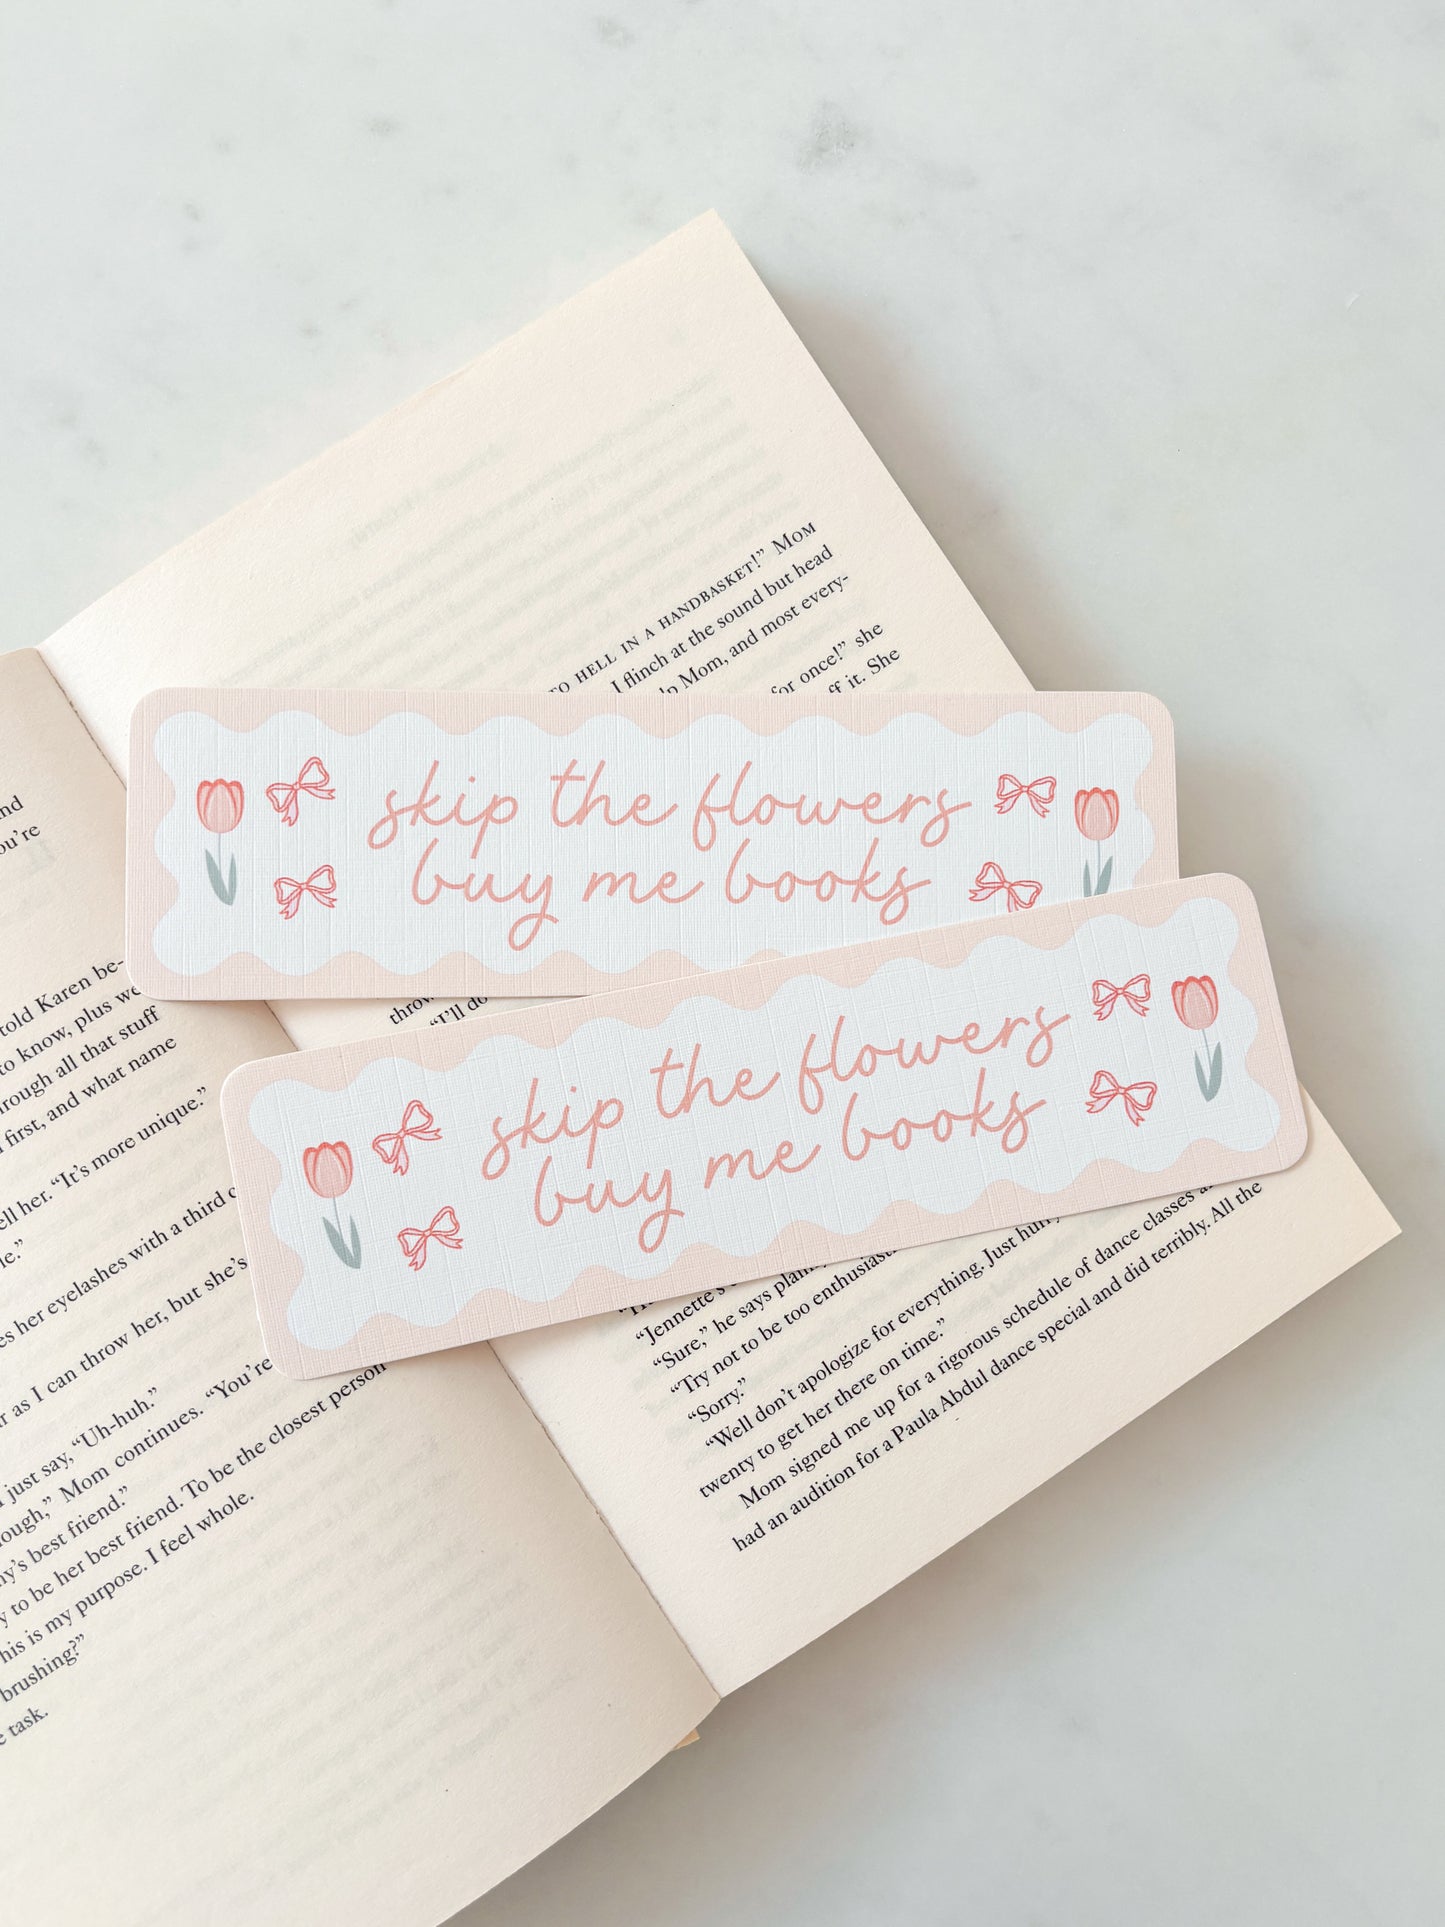 skip the flowers
buy me books
skip the flowers
buy me books
and
told Karen be-
to know, plus we
through all that stuff
first, and what name
ell her. “It’s more unique.”
her eyelashes with a third
as I can throw her, but she’s
just say, “Uh-huh.”
Mom continues. “You’re
best friend.”
to be her best friend. To be the closest person
his is my purpose. I feel whole.
brushing?”
task.
TO HELL IN A HANDBASKET!” MOM
I flinch at the sound but head
Mom, and most every-
for once!” she
it. She
throw
“I’ll do
“Jennette’s
“Sure,” he says
“Try not to be too
“Sorry.”
“Well don’t apologize for everything. Just
twenty to get her there on time.”
Mom signed me up for a rigorous schedule of dance classes
had an audition for a Paula Abdul dance special and did terribly. All the